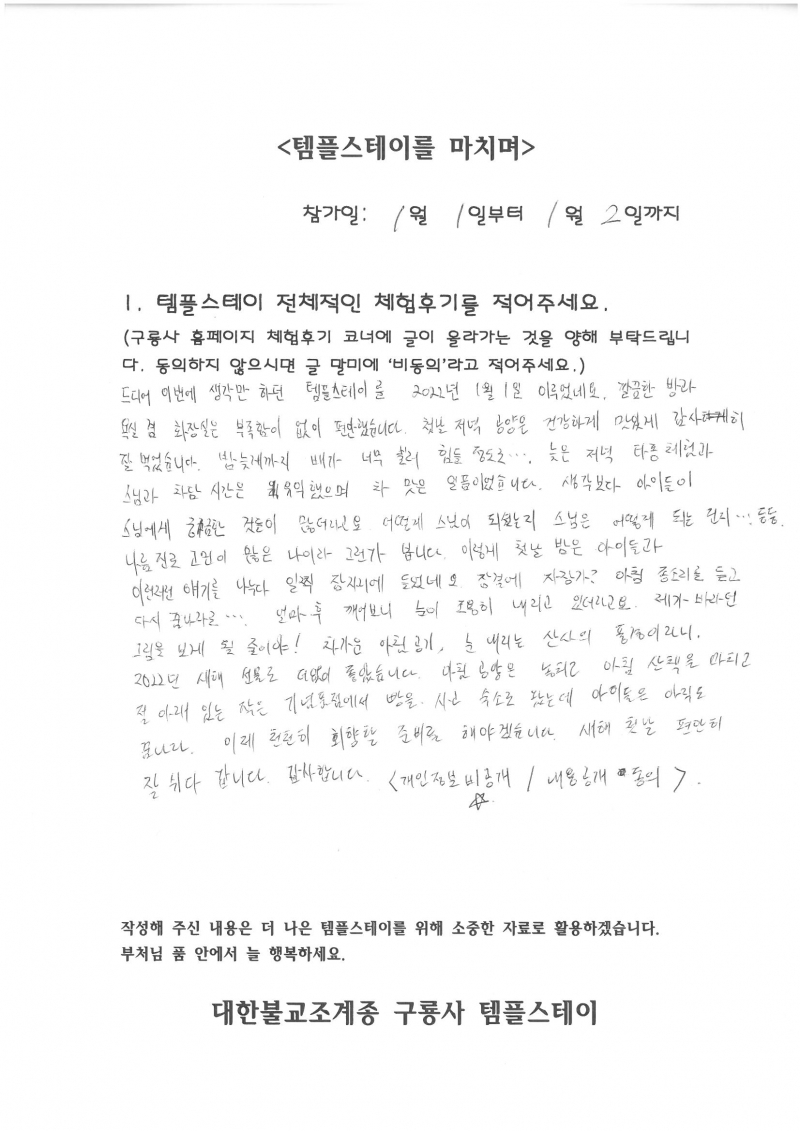 <템플스테이를 마치며>
참가일: 1월 1일부터 1월 2일까지
1. 템플스테이 전체적인 체험후기를 적어주세요.
(구룡사 홈페이지 체험후기 코너에 글이 올라가는 것을 양해 부탁드립니
다. 동의하지 않으시면 글 말미에 '비동의'라고 적어주세요.)
드디어 이번에 생각만 하던 템플스테이를 2022년 1월 1일 이루었네요. 깔끔한 방과
욕실 겸 화장실은 부족함이 없이 편안했습니다. 첫날 저녁 공양은 건강하게 맛있게 감사히
잘 먹었습니다. 밤늦게까지 배가 너무 불러 힘들 정도로…. 늦은 저녁 타종체험과
스님과 차담 시간은 유익했으며 차 맛은 일품이었습니다. 생각보다 아이들이
스님에게 궁금한 것들이 많더라고요. 어떻게 스님이 되셨는지 스님은 어떻게 되는 건지… 등등.
나름 진로 고민이 많은 나이라 그런가 봅니다. 이렇게 첫날 밤은 아이들과
이런저런 얘기를 나누다 일찍 잠자리에 들었네요. 잠결에 자장가? 아침 종소리를 듣고
다시 꿈나라로…. 얼마 후 깨어보니 눈이 조용히 내리고 있더라고요. 제가 바라던
그림을 보게 될 줄이야! 차가운 아침 공기, 눈 내리는 산사의 풍경이라니.
2022년 새해 선물로 더없이 좋았습니다. 아침 공양은 놓치고 아침 산책을 마치고
절 아래 있는 작은 기념품점에서 빵을 사고 숙소로 왔는데 아이들은 아직도
꿈나라. 이제 천천히 회향할 준비를 해야겠습니다. 새해 첫날 편안히
잘 쉬다 갑니다. 감사합니다. <개인정보 비공개 / 내용공개 동의>.
작성해 주신 내용은 더 나은 템플스테이를 위해 소중한 자료로 활용하겠습니다.
부처님 품 안에서 늘 행복하세요.
대한불교조계종 구룡사 템플스테이